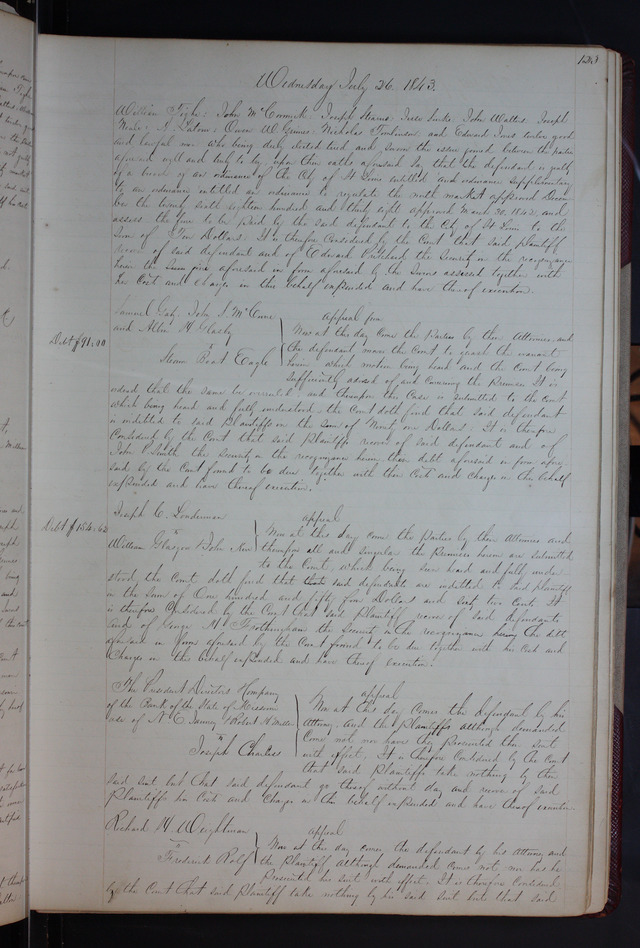 Wednesday July 26. 1843.
William Tighe: John McCormick: Joseph Stearns: Jesse Links: John Watters. Joseph
Weeks: Owen W. Grimes: Nicholas Tomlinson, and Edward Jones twelve good
and lawful men who being duly elected tried and sworn the issue joined between the parties
aforesaid well and truly to try upon their oaths aforesaid Say that the defendant is guilty
of a breach of an ordinance of the City of St Louis entitled and ordinance Supplementary
to an ordinance entitled an ordinance to regulate the north market approved
the twenty sixth eighteen hundred and thirty eight approved March 30. 1842. and
assess the fine to be paid by the said defendant to the City of St Louis to the
Sum of Ten Dollars. It is therefore Considered by the Court that said plaintiff
recover of said defendant and of Edward Pritchard the Security in the recognizance
herein the fine aforesaid in form aforesaid by the Jurors assessed together with
her Costs and Charges in this behalf expended and have thereof execution.
Samuel Gaty. John S. McCune
and Allen H. Glasby
vs
Steam Boat Eagle
Debt $91.00
appeal
Now at this day Come the Parties by their Attornies and
the defendant moves the Court to quash the warrant
herein which motion being heard and the Court being
Sufficiently advised of and Concerning the Premises It is
ordered that the same be overruled. and thereupon the Case is submitted to the Court
which being heard and fully understood the Court doth find that said defendant
is indebted to said Plaintiffs in the Sum of Ninety one Dollars. It is therefore
Considered by the Court that said Plaintiffs recover of said defendant and of
John Smith the security in the recognizance herein their debt aforesaid in form afore
said by the Court found to be due together with their Costs and charges in this behalf
expended and have thereof execution.
Joseph C. Linderman
vs
William Glasgow & John Nee
Debt $154.62
appeal
Now at this day come the Parties by their Attornies and
thereupon all and singular the Premises herein are submitted
to the Court, which being seen heard and fully under
stood, the Court doth find that said defendants are indebted to said plaintiff
in the sum of One hundred and fifty four Dollars and sixty two Cents. It
is therefore Considered by the Court that said Plaintiff recover of said defendants
and of George M Frothingham the Security in the recognizance herein the debt
aforesaid in form aforesaid by the Court found to be due together with his Costs and
Charges in this behalf expended and have thereof execution.
The President Directors & Company
of the Bank of the State of Missouri
use of N. E. Janney & Robert H. Miller
vs
Joseph Charless
appeal
Now at this day Comes the defendant by his
Attorney. And the Plaintiffs although demanded
Come not nor have they Presented their suit
with effect. It is therefore Considered by the Court
that said Plaintiffs take nothing by their
said suit but that said defendant go thereof without day and recover of said
Plaintiffs his Costs and Charges in this behalf expended and have thereof execution
Richard H. Weightman
vs
Frederick Rolf
appeal
Now at this day comes the defendant by his Attorney and
the Plaintiff although demanded Comes not nor has he
Presented his suit with effect. It is therefore Considered
by the Court that said Plaintiff take nothing by his said suit but that said